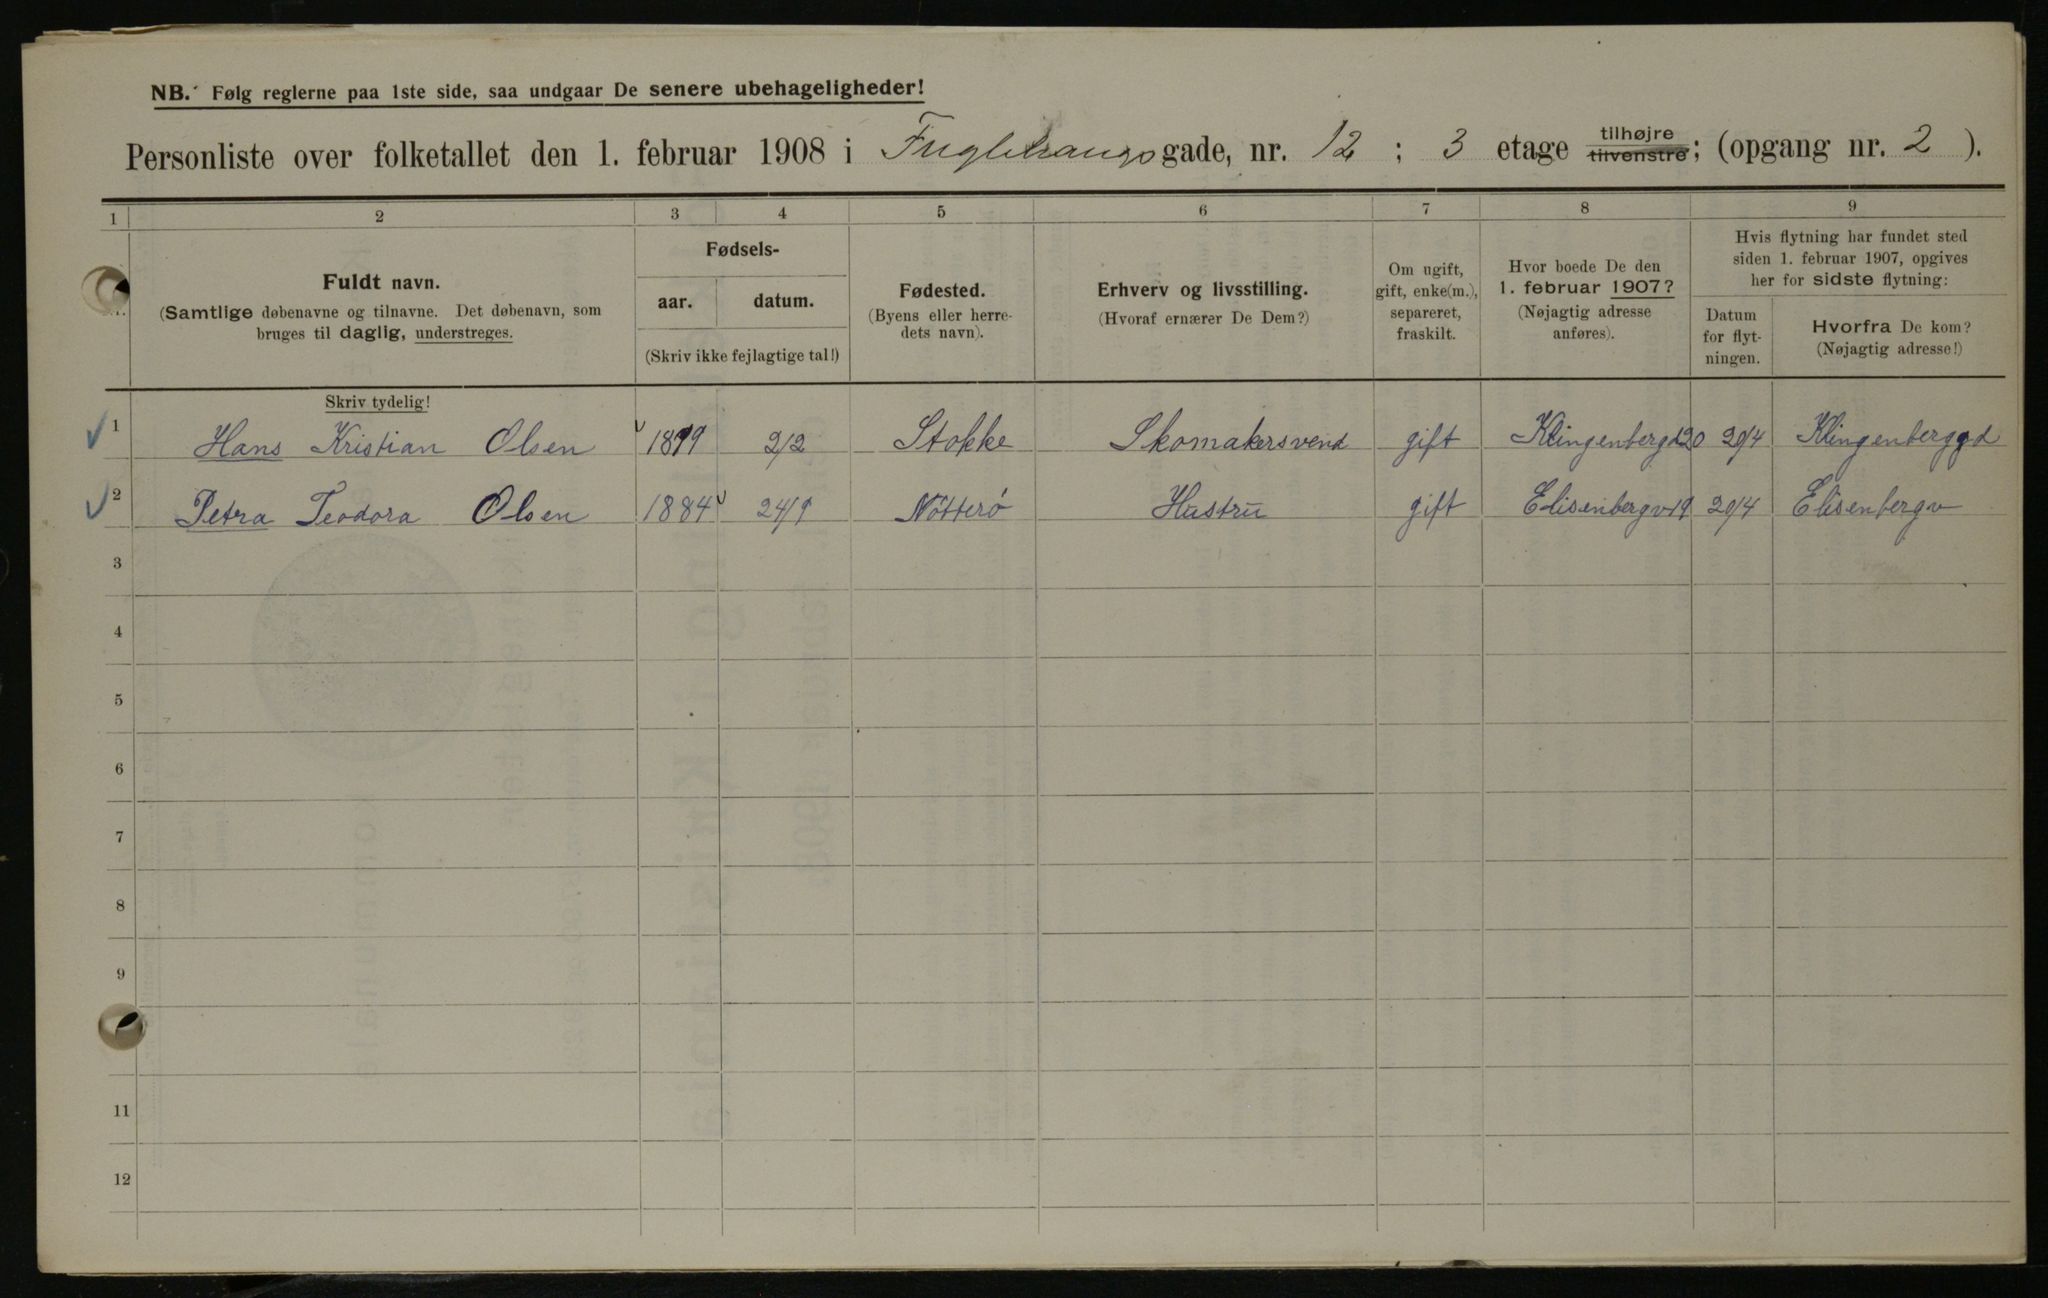 NB. Følg reglerne paa 1ste side, saa undgaar De senere ubehageligheder!
Personliste over folketallet den 1. februar 1908 i Fuglehaugs gade, nr. 12 ; 3 etage tilhøjre tilvenstre; (opgang nr. 2 ).
1 2 3 4 5 6 7 8 9
Fuldt navn.
(Samtlige døbenavne og tilnavne. Det døbenavn, som
bruges til daglig, understreges.
Fødsels-
aar. datum.
(Skriv ikke fejlagtige tal!)
Fødested.
(Byens eller herre-
dets navn).
Erhverv og livsstilling.
(Hvoraf ernærer De Dem?)
Om ugift,
gift, enke(m.),
separeret,
fraskilt.
Hvor boede De den
1. februar 1907?
(Nøjagtig adresse
anføres).
Hvis flytning har fundet sted
siden 1. februar 1907, opgives
her for sidste flytning:
Datum
for flyt-
ningen.
Hvorfra De kom?
(Nøjagtig adresse!)
Skriv tydelig!
1 Hans Kristian Olsen 1879 2/2 Stokke Skomakersvend gift Klingenbergd20 20/4 Klingenberggd
2 Petra Teodora Olsen 1884 24/9 Nötterö Hustru gift Elisenbergv19 20/4 Elisenbergv
3
4
5
6
7
8
9
11
12